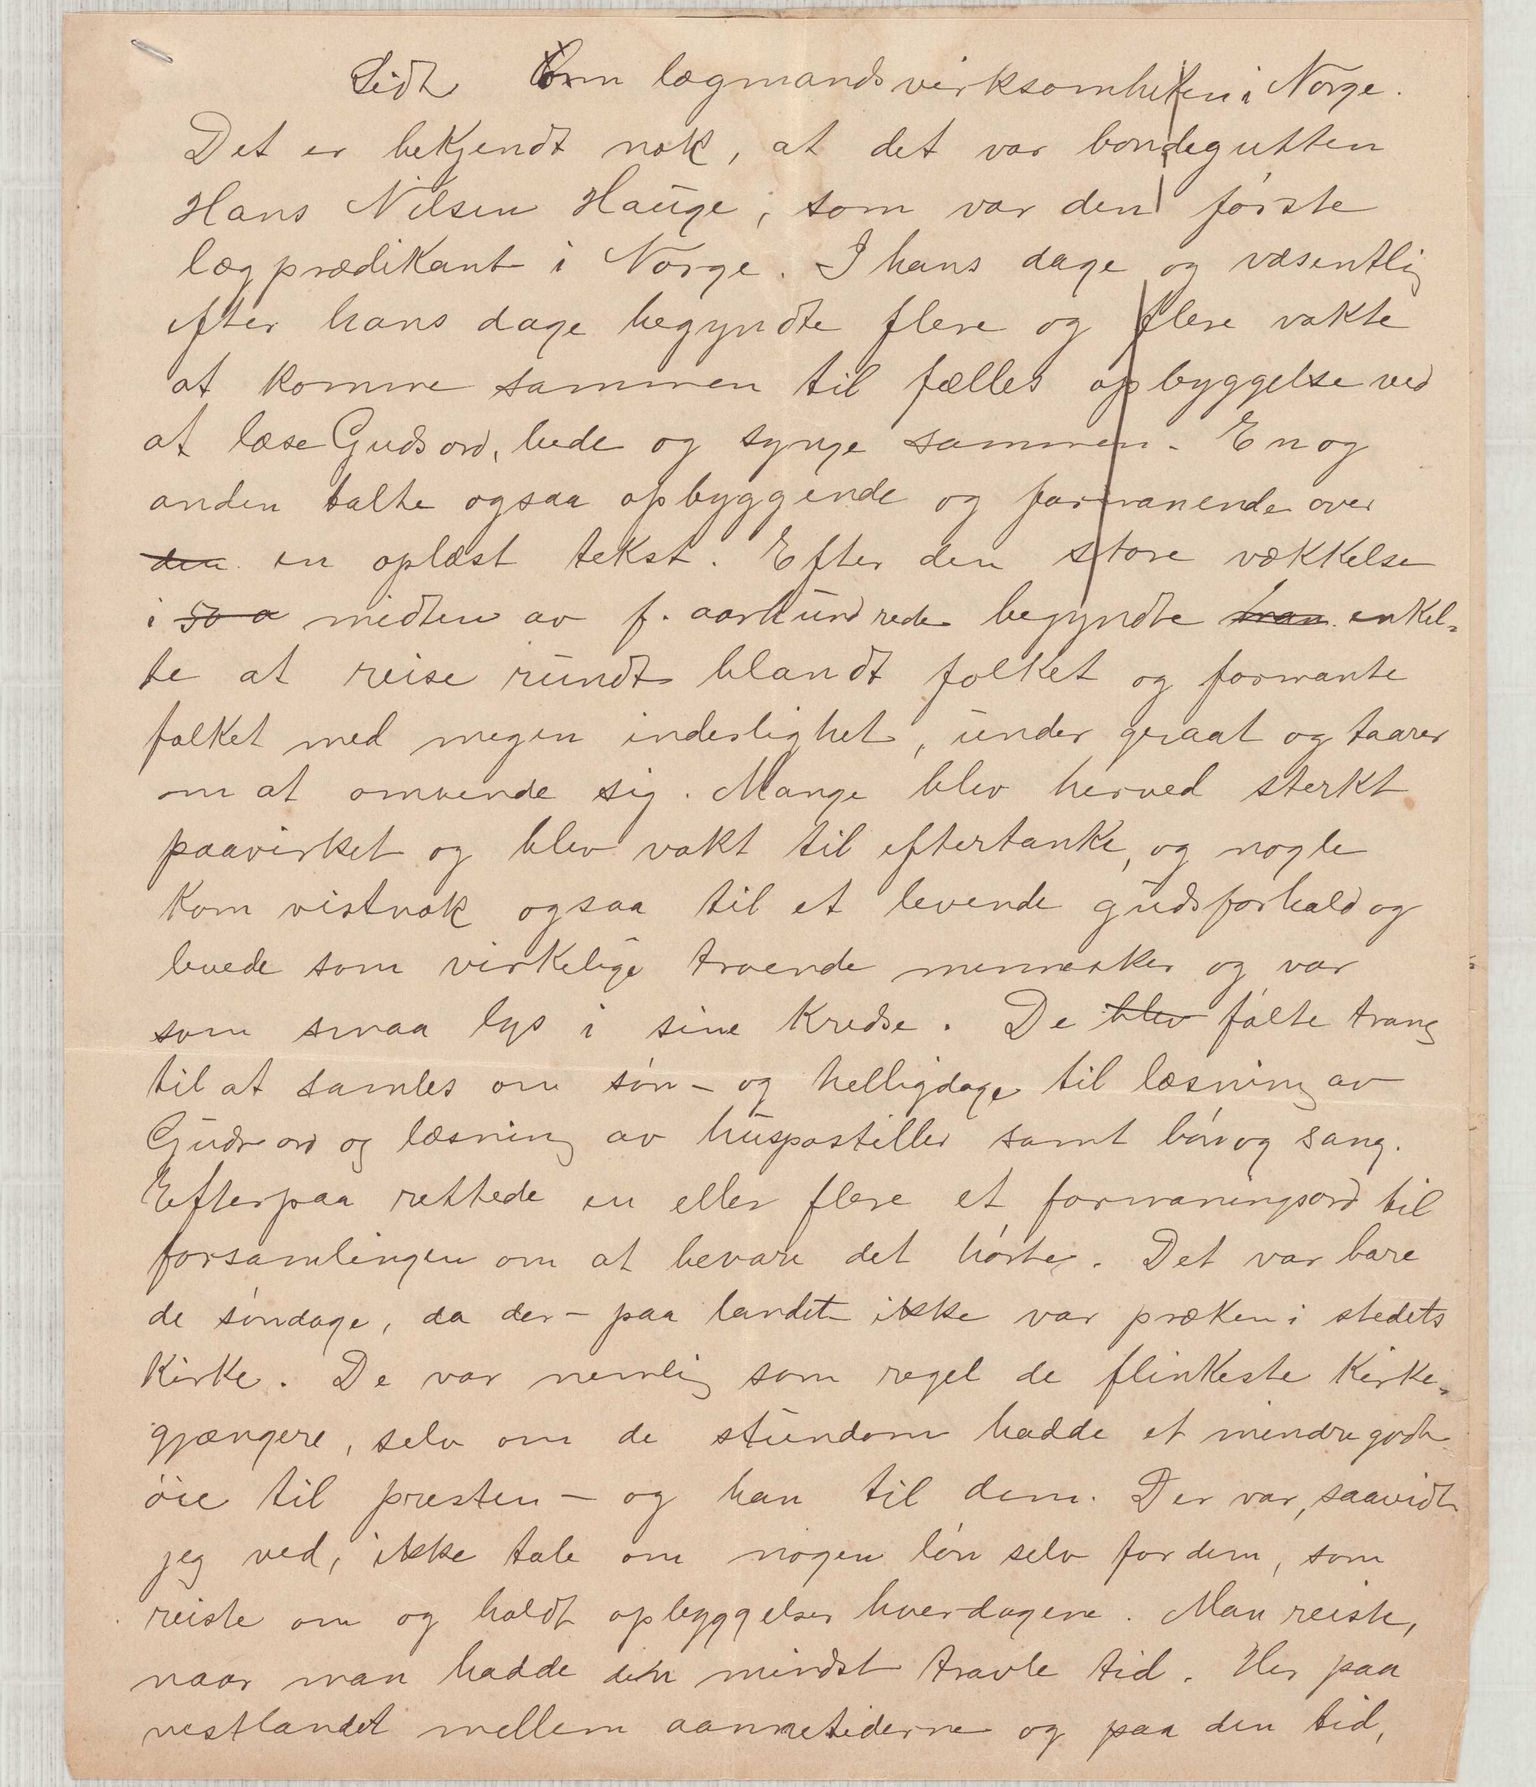 Lidt om lægmandsvirksomheten i Norge.
Det er bekjendt nok, at det var bondegutten
Hans Nilsen Hauge, som var den første
lægprædikant i Norge. I hans dage og væsentlig
efter hans dage begyndte flere og flere vakte
at komme sammen til fælles opbyggelse ved
at læse Guds ord, bede og synge sammen. En og
anden talte ogsaa opbyggende og formanende over
den en oplæst tekst. Efter den store vækkelse
i 50 a midten av f. aarhundrede begyndte man enkel-
te at reise rundt blandt folket og formante
folket med megen inderlighet, under graat og taarer
om at omvende sig. Mange blev herved sterkt
paavirket og blev vakt til eftertanke, og nogle
kom vistnok ogsaa til et levende gudsforhold og
levede som virkelige troende mennesker og var
som smaa lys i sine kredse. De blev følte trang
til at samles om søn- og helligdage til læsning av
Guds ord og læsning av huspostiller samt bøn og sang.
Efterpaa rettede en eller flere et formaningsord til
forsamlingen om at bevare det hørte. Det var bare
de søndage, da der - paa landet ikke var præken i stedets
kirke. De var nemlig som regel de flinkeste kirke-
gjængere, selv om de stundom hadde et mindre godt
øie til presten - og han til dem. Der var, saavidt
jeg ved, ikke tale om nogen løn selv for dem, som
reiste om og holdt opbyggelser hverdagene. Man reiste,
naar man hadde den mindst travle tid. Her paa
vestlandet mellem aannetiderne og paa den tid,